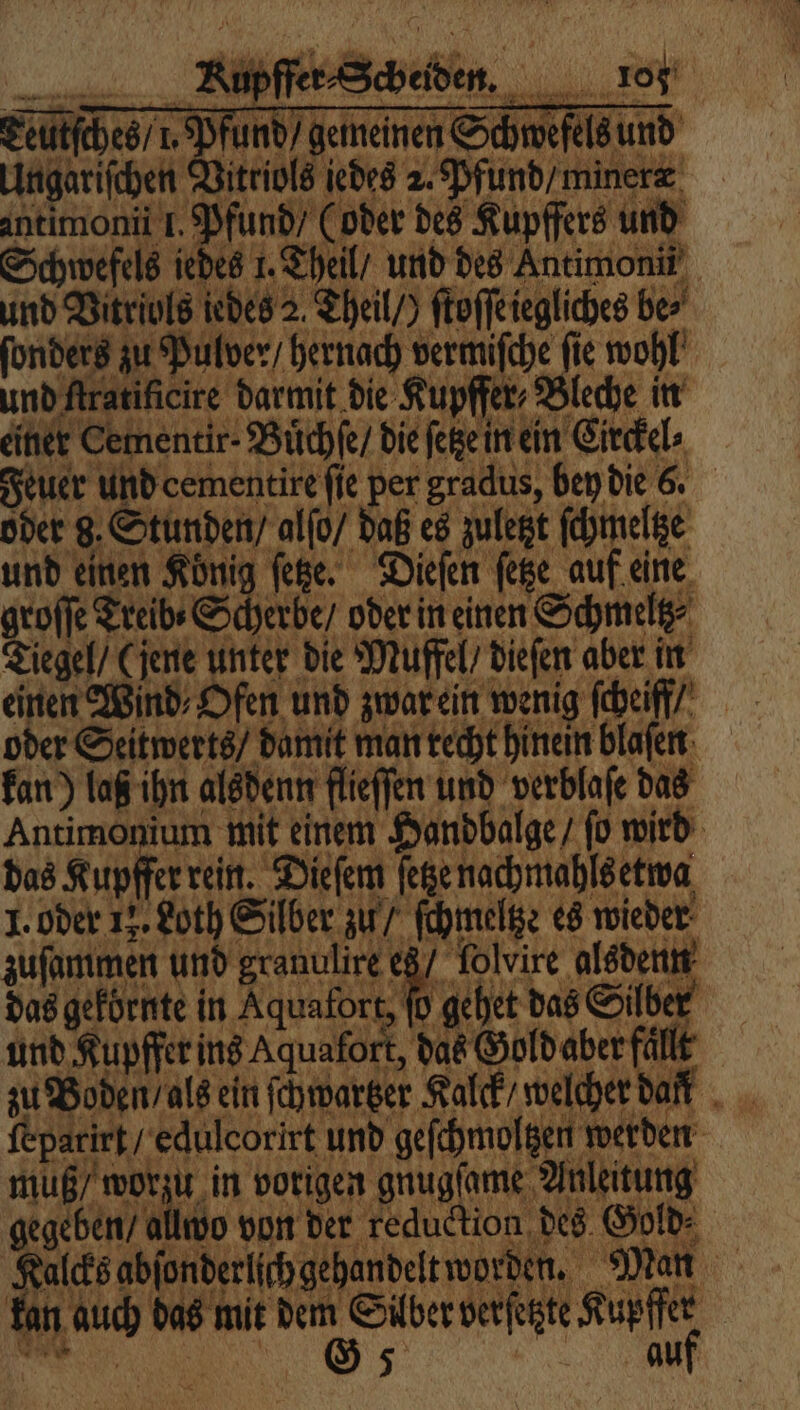 Kupffer-Scheiden. 105
Teutſches/ 1. Pfund/ gemeinen Schwefels und
Ungariſchen Vitriols iedes 2. Pfund/ mineræ
antimonii 1. Pfund/ (oder des Kupffers und
Schwefels iedes 1. Theil/ und des Antimonii
und Vitriols iedes 2. Theil/) ſtoſſe iegliches be-
ſonders zu Pulver/ hernach vermiſche ſie wohl
und ſtratificire darmit die Kupffer-Bleche in
einer Cementir-Buͤchſe/ die ſetze in ein Circkel-
Feuer und cementire ſie per gradus, bey die 6.
oder 8. Stunden/ alſo/ daß es zuletzt ſchmeltze
und einen Koͤnig ſetze. Dieſen ſetze auf eine
groſſe Treib-Scherbe/ oder in einen Schmeltz-
Tiegel/ (jene unter die Muffel/ dieſen aber in
einen Wind-Ofen und zwar ein wenig ſcheiff/
oder Seitwerts/ damit man recht hinein blaſen
kan) laß ihn alsdenn flieſſen und verblaſe das
Antimonium mit einem Handbalge/ ſo wird
das Kupffer rein. Dieſem ſetze nachmahls etwa
1. oder 1½. Loth Silber zu/ ſchmeltze es wieder
zuſammen und granulire es/ ſolvire alsdenn
das gekoͤrnte in Aquafort, ſo gehet das Silber
und Kupffer ins Aquafort, das Gold aber faͤllt
zu Boden/ als ein ſchwartzer Kalck/ welcher dañ
ſeparirt/ edulcorirt und geſchmoltzen werden
muß/ worzu in vorigen gnugſame Anleitung
gegeben/ allwo von der reduction des Gold-
Kalcks abſonderlich gehandelt worden. Man
kan auch das mit dem Silber verſetzte Kupffer
G 5 auf